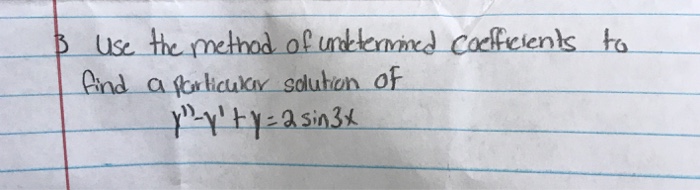 3 Use the method of undetermined coefficients to
find a particular solution of
y''-y'+y=2 sin3x